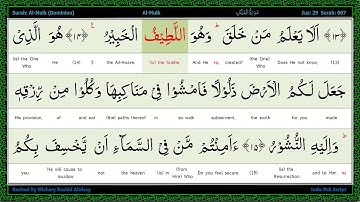 Surah: Al-Mulk (Dominion) Al-Mulk سُوْرَةُ الْمُلْكِ Juz: 29 Surah: 067
﴿١٣﴾ اَلَا يَعْلَمُ مَنْ خَلَقَ ؕ وَهُوَ اللَّطِيْفُ الْخَبِيْرُ ﴿١٤﴾ هُوَ الَّذِىْ
(13) Does He not know, the One Who created? And He (is) the Subtle, the All-Aware. (is) the One Who
جَعَلَ لَكُمُ الْاَرْضَ ذَلُوْلًا فَامْشُوْا فِىْ مَنَاكِبِهَا وَكُلُوْا مِنْ رِّزْقِهٖ ؕ
His provision, of and eat (the) paths thereof in so walk subservient, the earth for you made
وَاِلَيْهِ النُّشُوْرُ ﴿١٥﴾ ءَاَمِنْتُمْ مَّنْ فِى السَّمَآءِ اَنْ يَّخْسِفَ بِكُمُ
you He will cause to swallow not the heaven (is) in (from Him) Who Do you feel secure (15) (is) the Resurrection. and to Him
Recited By Mishary Rashid Alafasy Indo-Pak Script